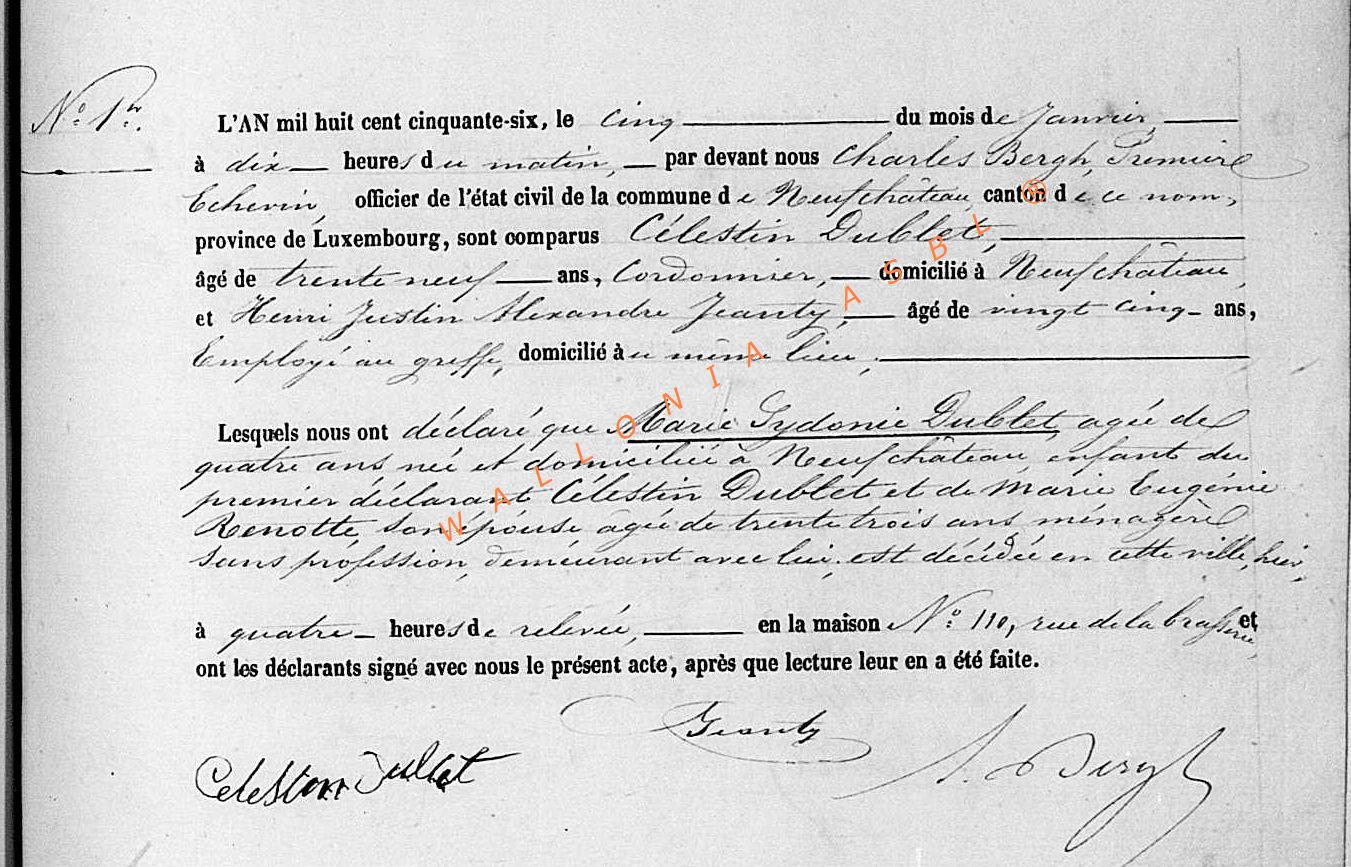 N.o 1.er
L'AN mil huit cent cinquante-six, le cinq du mois de Janvier
à dix heures du matin, par devant nous Charles Bergh, Premier
Echevin, officier de l'état civil de la commune de Neufchâteau, canton de ce nom,
province de Luxembourg, sont comparus Célestin Dublet,
âgé de trente neuf ans, Cordonnier, domicilié à Neufchâteau
et Henri Justin Alexandre Jeanty, âgé de vingt cinq ans,
Employé au greffe, domicilié au même lieu,
Lesquels nous ont déclaré que Marie Sydonie Dublet, agée de
quatre ans née et domiciliée à Neufchâteau, enfant du
premier déclarant Célestin Dublet et de Marie Eugénie
Renotte, son épouse agée de trente trois ans ménagère
sans profession, demeurant avec lui, est décédée en cette ville, hier,
à quatre heures de relevée, en la maison N.o 110, rue de la brasserie, et
ont les déclarants signé avec nous le présent acte, après que lecture leur en a été faite.
Jeanty
Celeston Dublet
Bergh
WALLONIA ASBL ®